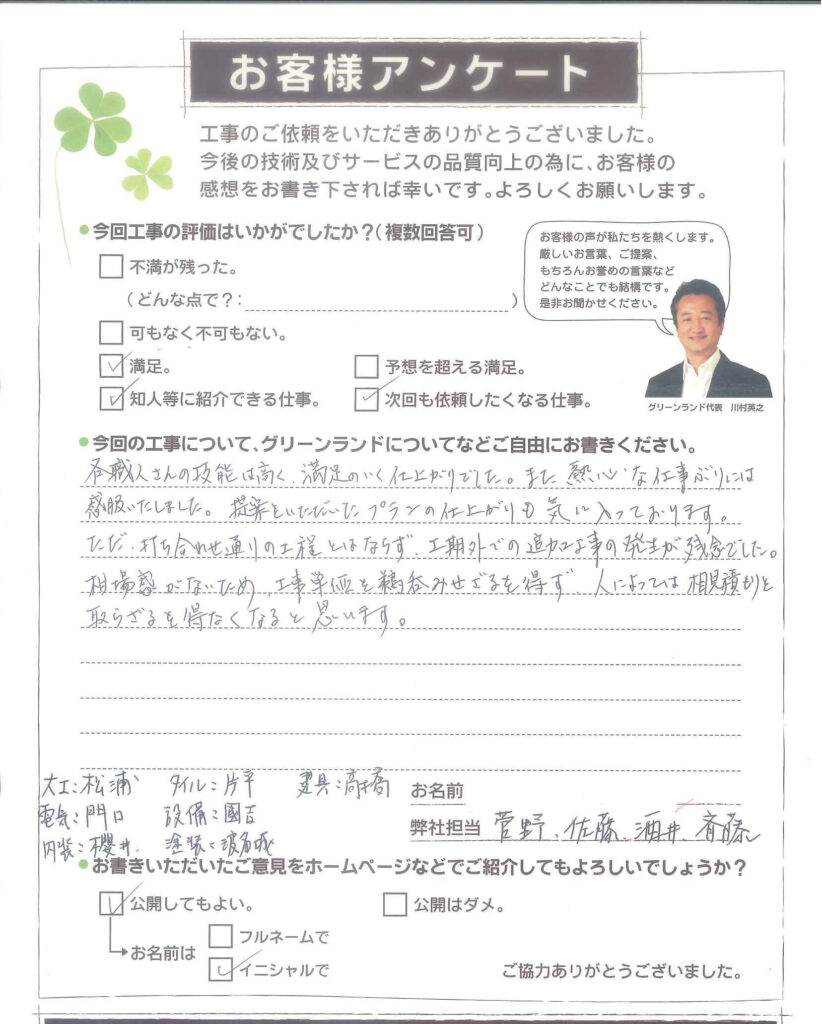 お客様アンケート
工事のご依頼をいただきありがとうございました。
今後の技術及びサービスの品質向上の為に、お客様の
感想をお書き下されば幸いです。よろしくお願いします。
今回工事の評価はいかがでしたか?(複数回答可)
不満が残った。
(どんな点で?: )
可もなく不可もない。
満足。
予想を超える満足。
知人等に紹介できる仕事。
次回も依頼したくなる仕事。
お客様の声が私たちを熱くします。
厳しいお言葉、ご提案、
もちろんお誉めの言葉など
どんなことでも結構です。
是非お聞かせください。
グリーンランド代表 川村英之
今回の工事について、グリーンランドについてなどご自由にお書きください。
各職人さんの技能は高く、満足のいく仕上がりでした。また熱心な仕事ぶりには
感服いたしました。提案をいただいたプランの仕上がりも気に入っております。
ただ、打ち合わせ通りの工程とはならず、工期外での追加工事の発生が残念でした。
相場感がないため、工事単価を鵜呑みせざるを得ず、人によっては相見積もりを
取らざるを得なくなると思います。
大工:松浦 タイル:片平 建具:高橋
電気:門口 設備:國吉
内装:櫻井 塗装:波名城
お名前
弊社担当 菅野、佐藤、酒井、斉藤
お書きいただいたご意見をホームページなどでご紹介してもよろしいでしょうか?
公開してもよい。
公開はダメ。
お名前は
フルネームで
イニシャルで
ご協力ありがとうございました。